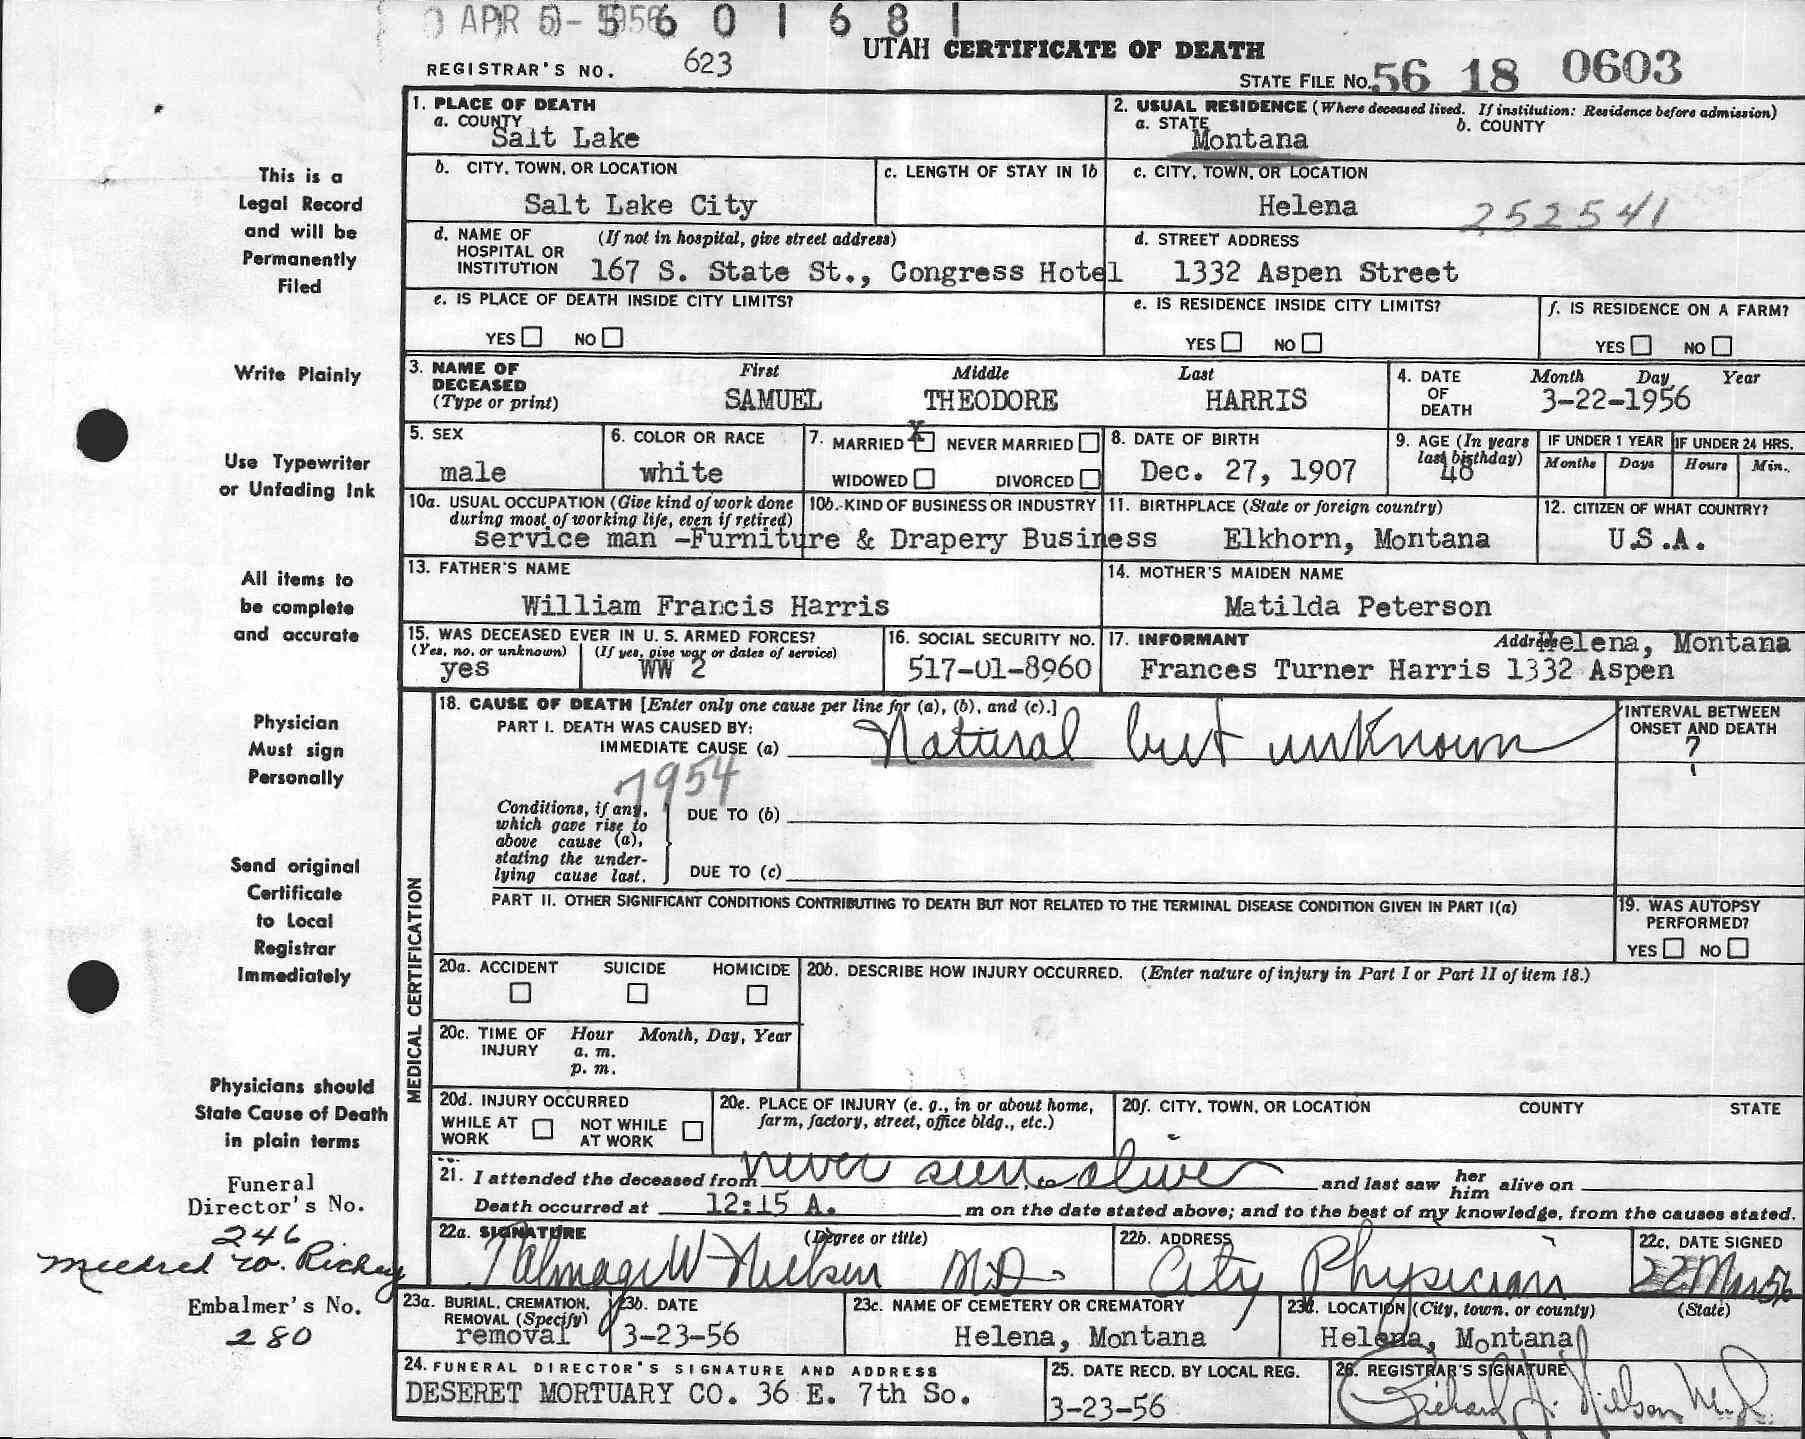 APR 5 - 1956 5601681
UTAH CERTIFICATE OF DEATH
REGISTRAR'S NO. 623
STATE FILE NO. 56 18 0603
1. PLACE OF DEATH
a. COUNTY
Salt Lake
2. USUAL RESIDENCE (Where deceased lived. If institution: Residence before admission)
a. STATE b. COUNTY
Montana
b. CITY, TOWN, OR LOCATION
Salt Lake City
c. LENGTH OF STAY IN 1b
c. CITY, TOWN, OR LOCATION
Helena
252541
d. NAME OF HOSPITAL OR INSTITUTION (If not in hospital, give street address)
167 S. State St., Congress Hotel
d. STREET ADDRESS
1332 Aspen Street
e. IS PLACE OF DEATH INSIDE CITY LIMITS?
YES NO
e. IS RESIDENCE INSIDE CITY LIMITS?
YES NO
f. IS RESIDENCE ON A FARM?
YES NO
3. NAME OF DECEASED (Type or print)
First Middle Last
SAMUEL THEODORE HARRIS
4. DATE OF DEATH
Month Day Year
3-22-1956
5. SEX
male
6. COLOR OR RACE
white
7. MARRIED X NEVER MARRIED
WIDOWED DIVORCED
8. DATE OF BIRTH
Dec. 27, 1907
9. AGE (In years last birthday)
48
IF UNDER 1 YEAR IF UNDER 24 HRS.
Months Days Hours Min.
10a. USUAL OCCUPATION (Give kind of work done during most of working life, even if retired)
10b. KIND OF BUSINESS OR INDUSTRY
service man -Furniture & Drapery Business
11. BIRTHPLACE (State or foreign country)
Elkhorn, Montana
12. CITIZEN OF WHAT COUNTRY?
U.S.A.
13. FATHER'S NAME
William Francis Harris
14. MOTHER'S MAIDEN NAME
Matilda Peterson
15. WAS DECEASED EVER IN U. S. ARMED FORCES?
(Yes, no, or unknown) (If yes, give war or dates of service)
yes WW 2
16. SOCIAL SECURITY NO.
517-01-8960
17. INFORMANT Address
Helena, Montana
Frances Turner Harris 1332 Aspen
18. CAUSE OF DEATH [Enter only one cause per line for (a), (b), and (c).]
PART I. DEATH WAS CAUSED BY:
IMMEDIATE CAUSE (a) Natural but unknown
INTERVAL BETWEEN ONSET AND DEATH
?
7954
Conditions, if any, which gave rise to above cause (a), stating the under-lying cause last.
DUE TO (b)
DUE TO (c)
PART II. OTHER SIGNIFICANT CONDITIONS CONTRIBUTING TO DEATH BUT NOT RELATED TO THE TERMINAL DISEASE CONDITION GIVEN IN PART I(a)
19. WAS AUTOPSY PERFORMED?
YES NO
MEDICAL CERTIFICATION
20a. ACCIDENT SUICIDE HOMICIDE
20b. DESCRIBE HOW INJURY OCCURRED. (Enter nature of injury in Part I or Part II of item 18.)
20c. TIME OF INJURY Hour Month, Day, Year
a. m.
p. m.
20d. INJURY OCCURRED
WHILE AT WORK NOT WHILE AT WORK
20e. PLACE OF INJURY (e. g., in or about home, farm, factory, street, office bldg., etc.)
20f. CITY, TOWN, OR LOCATION COUNTY STATE
21. I attended the deceased from never seen alive and last saw her him alive on
Death occurred at 12:15 A. m on the date stated above; and to the best of my knowledge, from the causes stated.
22a. SIGNATURE (Degree or title)
Talmage W Nielsen M.D.
22b. ADDRESS
City Physician
22c. DATE SIGNED
22 Mar 56
23a. BURIAL, CREMATION, REMOVAL (Specify)
removal
23b. DATE
3-23-56
23c. NAME OF CEMETERY OR CREMATORY
Helena, Montana
23d. LOCATION (City, town, or county) (State)
Helena, Montana
24. FUNERAL DIRECTOR'S SIGNATURE AND ADDRESS
DESERET MORTUARY CO. 36 E. 7th So.
25. DATE RECD. BY LOCAL REG.
3-23-56
26. REGISTRAR'S SIGNATURE
Richard H. Nielson M.D.
This is a
Legal Record
and will be
Permanently
Filed
Write Plainly
Use Typewriter
or Unfading Ink
All items to
be complete
and accurate
Physician
Must sign
Personally
Send original
Certificate
to Local
Registrar
Immediately
Physicians should
State Cause of Death
in plain terms
Funeral
Director's No.
246
Mildred W. Richey
Embalmer's No.
280